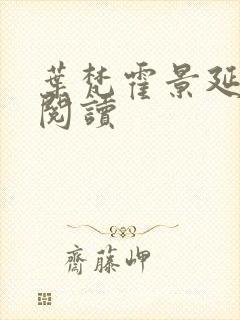 葉梵霍景延
閱讀
齋藤岬